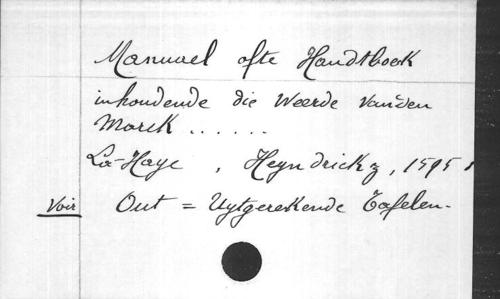 Manuael ofte Handtboek
inhoudende die Weerde vanden
Marck ......
La-Haye, Heyndrickz, 1595
Voir Out = Uytgerekende Tafelen-